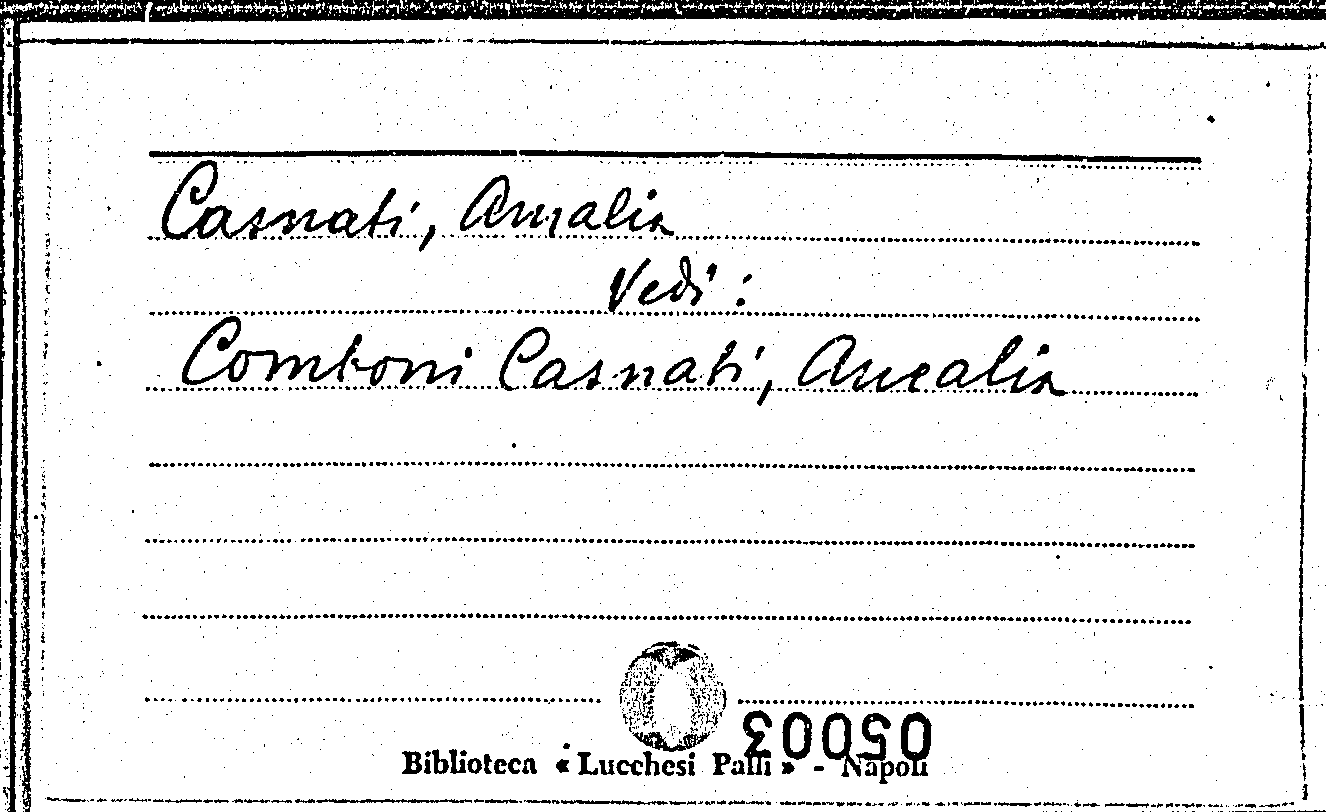 Casnati, Amalia
Vedi :
Comboni Casnati, Amalia
05003
Biblioteca « Lucchesi Palli » - Napoli